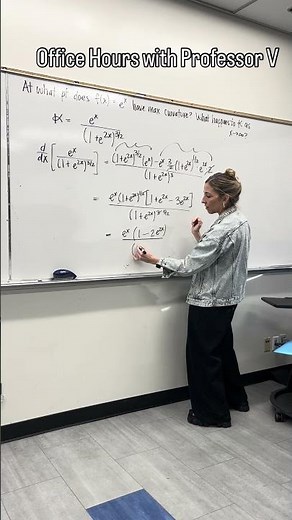 Office Hours with Professor V
At what pt does f(x) = e^x have max curvature? What happens to K as
x→∞?
K = e^x / (1+e^{2x})^{3/2}
d/dx [ e^x / (1+e^{2x})^{3/2} ] = ( (1+e^{2x})^{3/2} (e^x) − e^x · 3/2 (1+e^{2x})^{1/2} e^{2x} · 2 ) / (1+e^{2x})^3
= e^x (1+e^{2x})^{1/2} [1+e^{2x} − 3e^{2x}] / (1+e^{2x})^{3}
= e^x (1−2e^{2x}) / (